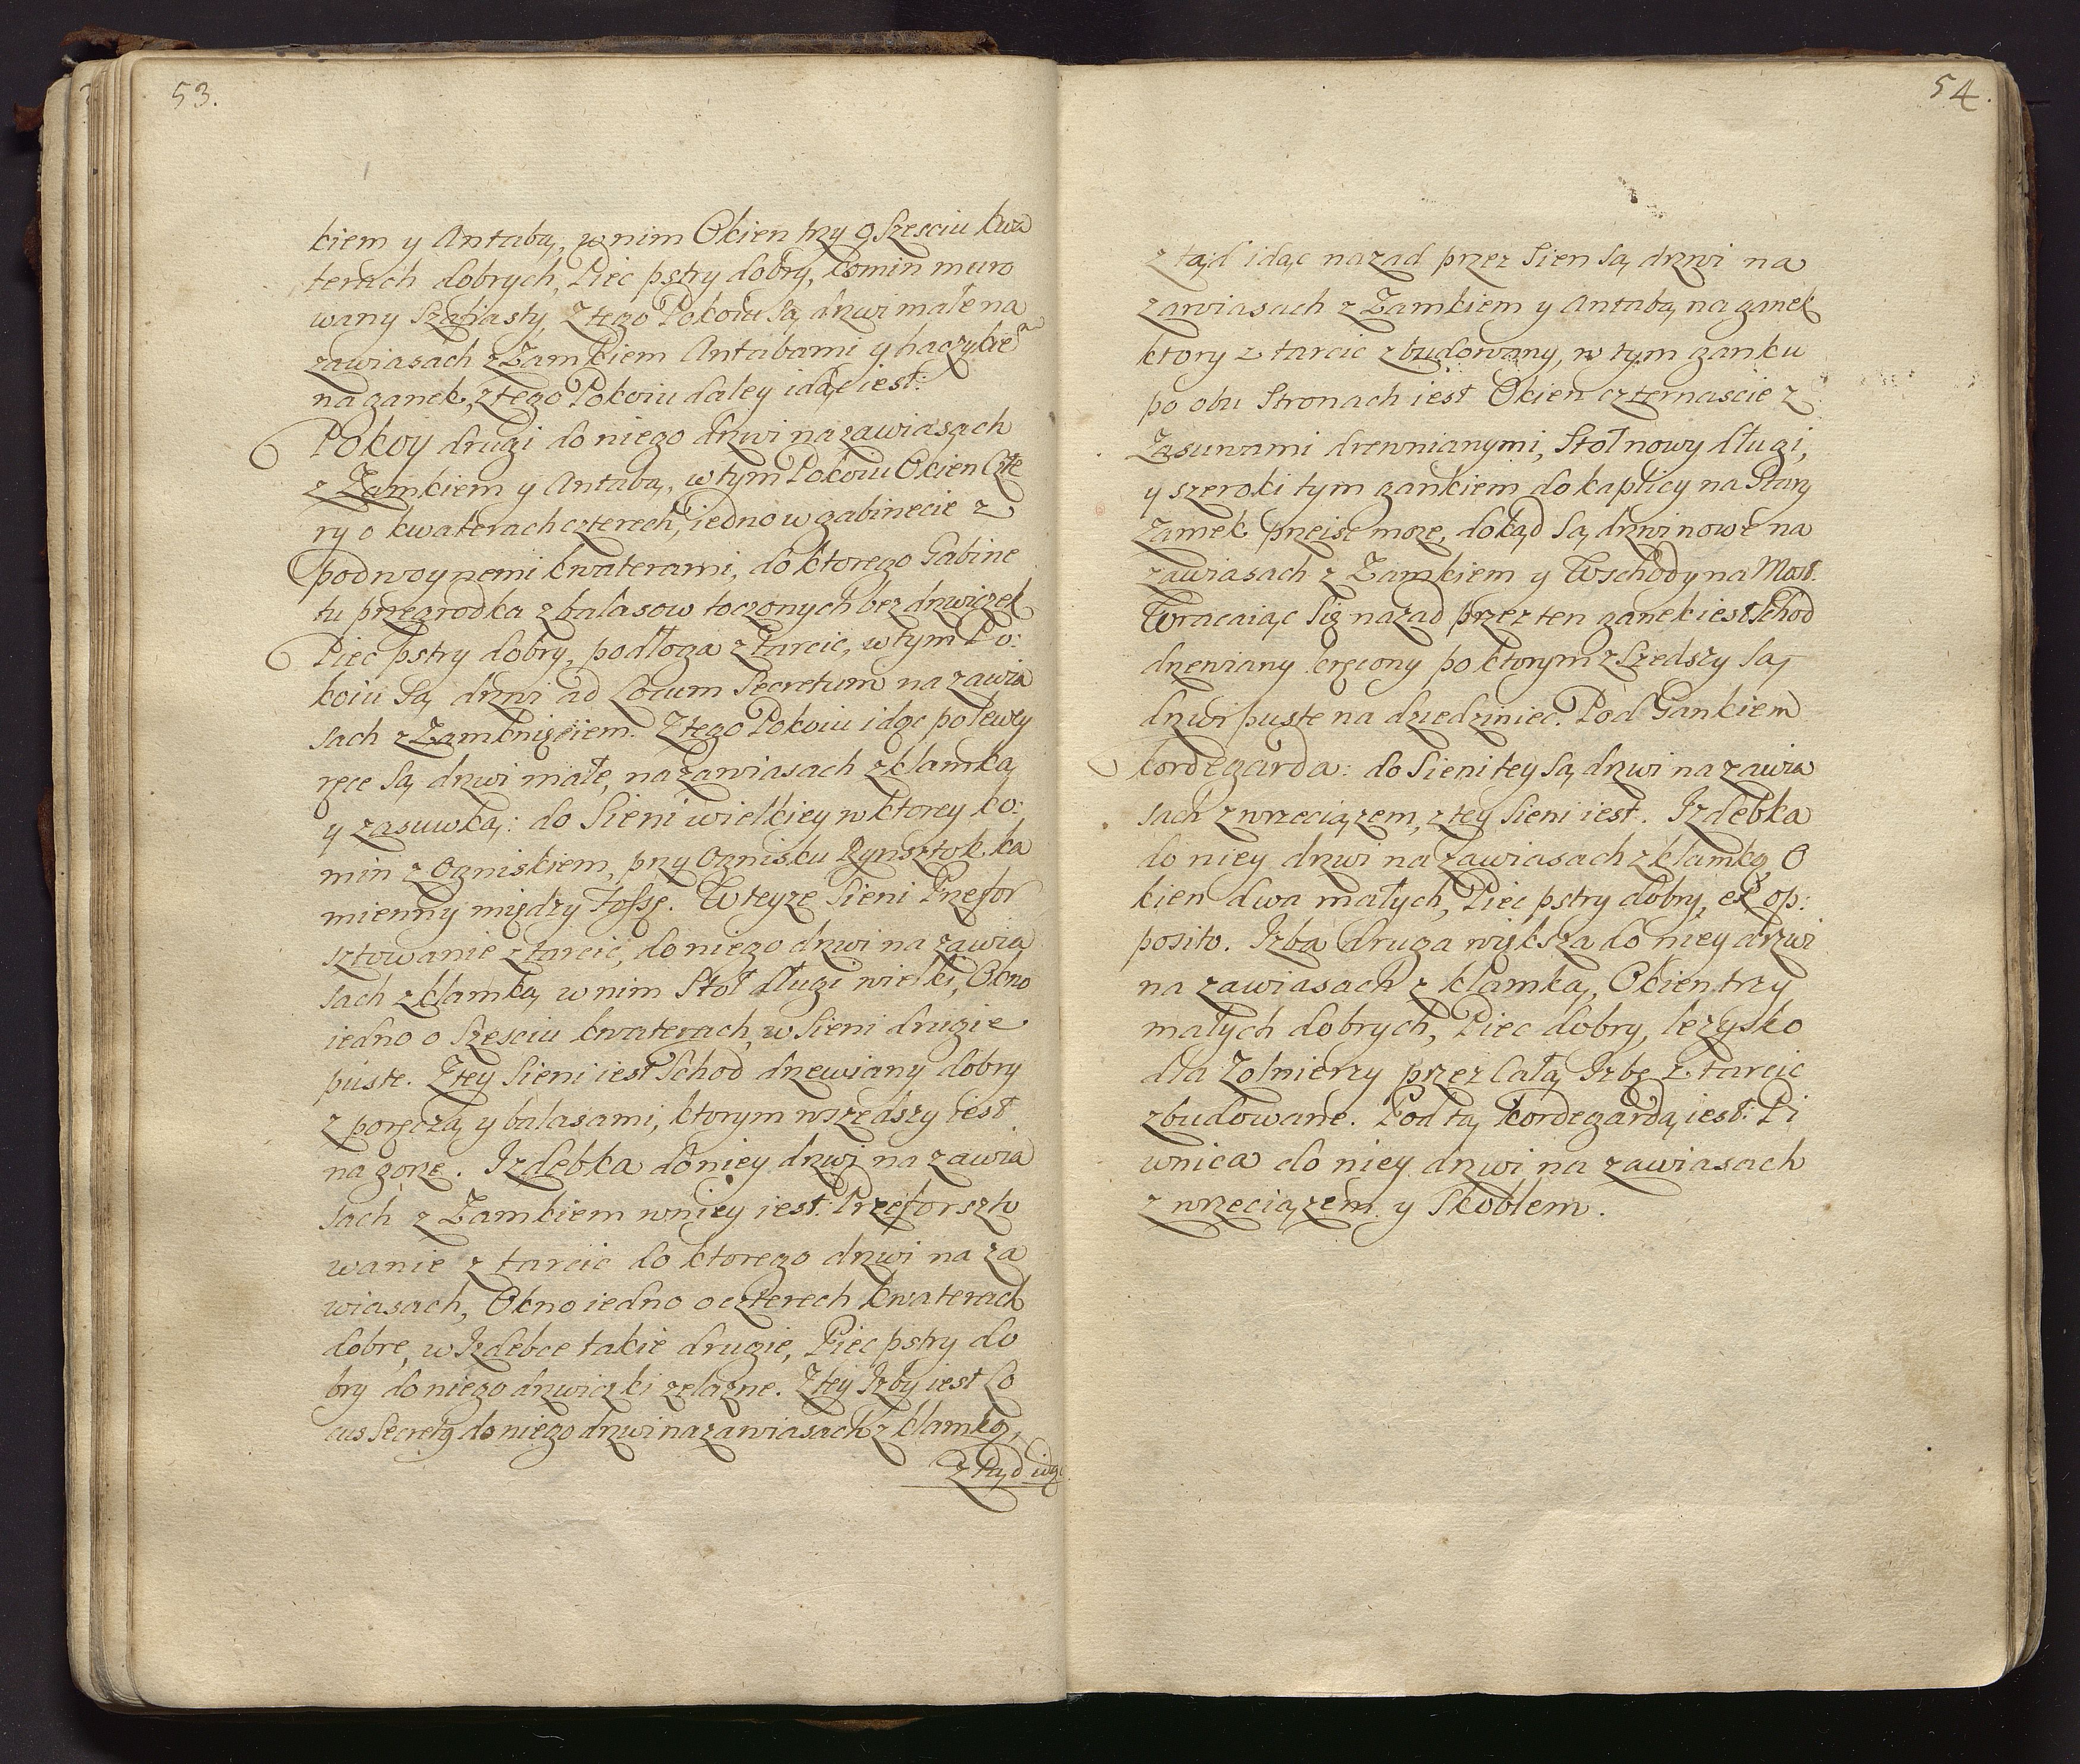 53.
kiem y Antabą, w nim Okien trzy o Szesciu kwa
terach dobrych, Piec pstry dobry, komin muro
wany Szafiasty, Z tego Pokoiu Są drzwi małe na
zawiasach z Zamkiem Antabami y haczykiem
na ganek, z tego Pokoiu daley idąc iest:
Pokoy drugi do niego drzwi na zawiasach
z Zamkiem y Antabą, w tym Pokoiu Okien Czte
ry o kwaterach czterech, iedno w gabinecie z
podwoynemi kwaterami, do ktorego Gabine
tu przegrodka z balasow toczonych bez drzwiczek
Piec pstry dobry, podłoga z Tarcic, w tym Po:
koiu Są drzwi ad Locum Secretum na zawia
sach z Zamknięciem. Z tego Pokoiu idąc po lewey
ręce Są drzwi małe, na zawiasach z klamką
y zasuwką: do Sieni wielkiey w ktorey ko:
min z Ogniskiem, przy Ognisku Rynsztok ka
mienny między Fossę. W teyze Sieni Przefor
sztowanie z tarcic, do niego drzwi na zawia
sach z klamką w nim Stoł długi wielki, Okno
iedno o Szesciu kwaterach, w Sieni drugie
puste. Z tey Sieni iest Schod drzewiany dobry
z poręczą y balasami, ktorym wszedszy iest
na gorze. Izdebka do niey drzwi na zawia
sach z Zamkiem w niey iest: Przeforszto
wanie z tarcic do ktorego drzwi na za
wiasach, Okno iedno o czterech kwaterach
dobre, w Izdebce takie drugie, Piec pstry do
bry do niego drzwiczki zelazne. Z tey Izby iest Lo
cus Secretg do niego drzwi na zawiasach z klamką,
Z tąd idąc
54.
z tąd idąc nazad przez Sien Są drzwi na
zawiasach z Zamkiem y Antabą na ganek
ktory z tarcic zbudowany, w tym ganku
po obu Stronach iest Okien czternascie z
Zasuwami drewnianymi, Stoł nowy długi,
y szeroki tym gankiem do kaplicy na Stary
Zamek przeisc moze, dokąd Są drzwi nowe na
zawiasach z Zamkiem y Wschody na Most.
Wracaiąc Się nazad przez ten ganek iest Schod
drzewiany kręcony po ktorym z Szedszy Są
drzwi puste na dziedziniec. Pod Gankiem
kordegarda: do Sieni tey Są drzwi na zawia
sach z wrzeciązem, z tey Sieni iest. Izdebka
do niey drzwi na zawiasach z klamką O
kien dwa małych, Piec pstry dobry, ex op:
posito. Izba druga większa do niey drzwi
na zawiasach z klamką, Okien trzy
małych dobrych, Piec dobry, lezysko
dla Zołnierzy przez Całą Izbę z tarcic
zbudowane. Pod tą kordegardą iest: Pi
wnica do niey drzwi na zawiasach
z wrzeciązem y Skoblem.